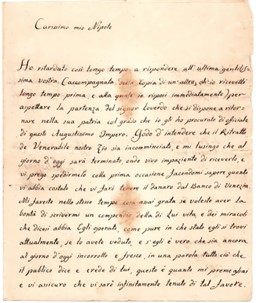 Carissimo mio Nipote
Ho ritardato così longo tempo a rispondere all' ultima gentilis=
sima vostra, Accompagnata con Copia di un' altra, ch' io ricevetti
longo tempo prima, e alla quale io risposi immediatamente, per
aspettare la partenza del signor Loverdo che si dispone a ritor=
nare nella sua patria col grado che io gli ho procurato di officiale
di questo Augustissimo Impero. Godo d'intendere che il Ritratto
del Venerabile nostro Zio sia incomminciato, e mi lusingo che al
giorno d'oggi sarà terminato, onde vivo impaziente di riceverlo, e
vi prego spedirmelo colla prima occasione facendomi sapere quanto
vi abbia costato che vi farò tenere il danaro dal Banco di Venezia
Mi farete nello stesso tempo cosa assai grata se voleste aver la
bontà di scrivermi un compendio della di Lui vita, e dei miracoli
che dicesi abbia Egli operato, come pure in che stato egli si trovi
attualmente, se lo avete veduto, e s'egli è vero che sia ancora
al giorno d'oggi incorrotto e fresco, in una parola tutto ciò che
il publico dice e crede di lui, questo è quanto mi preme assai
e vi assicuro che vi sarò infinitamente tenuto di tal favore.